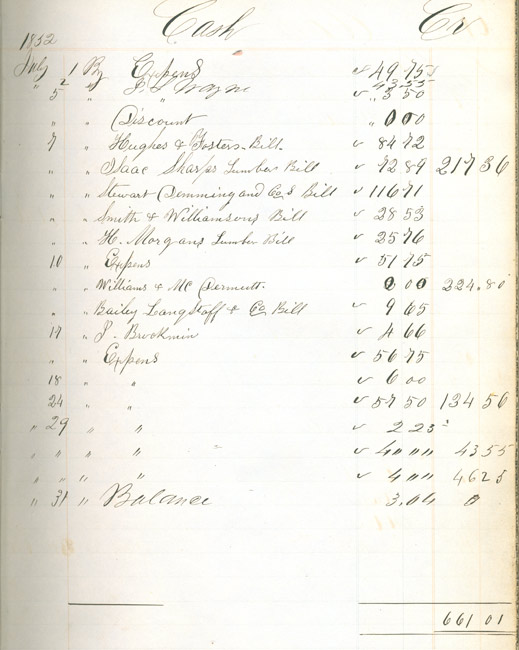 1852 Cash Cr
July 1 By Expens ✓ 49 75
" 2 " J. S. Wayne
5 " ✓ " 3 50
" " Discount " 0 00
7 " Hughes & Fosters Bill. ✓ 84 72
" " Isaac Sharps Lumber Bill ✓ 72 89 217 36
" " Stewart Demming and Co,s Bill ✓ 116 71
" " Smith & Williamsons Bill ✓ 28 53
" " H. Morgans Lumber Bill ✓ 25 76
10 " Expens ✓ 51 75
" " Williams & Mc Dermutt. 0 00 224.80
" " Bailey Langstaff & Co, Bill ✓ 9 65
17 " J. Brookmin ✓ 4 66
" " Expens ✓ 56 75
18 " " ✓ 6 00
24 " " ✓ 57 50 134 56
" 29 " " ✓ 2 25
" " " " ✓ 4 " " 43 55
" " " " ✓ 4 " " 46 25
" 31 " Balance 3.04 0
661 01